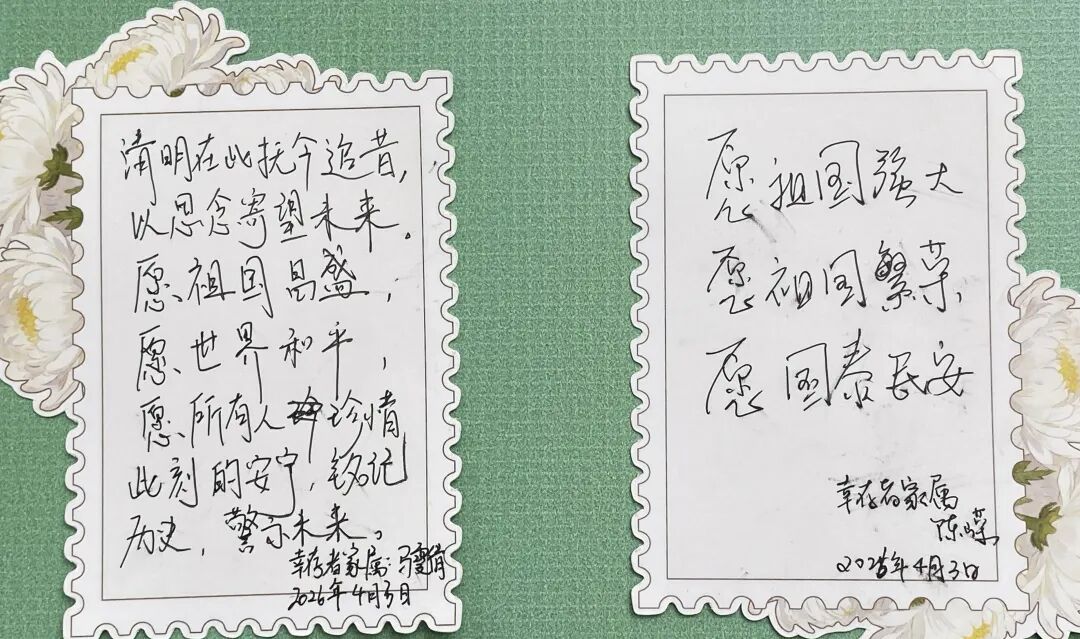 清明在此抚今追昔,
以思念寄望未来。
愿祖国昌盛,
愿世界和平,
愿所有人珍惜
此刻的安宁,铭记
历史,警示未来。
幸存者家属:马
2026年4月3日
愿祖国强大
愿祖国繁荣
愿国泰民安
幸存者家属
陈
2026年4月3日